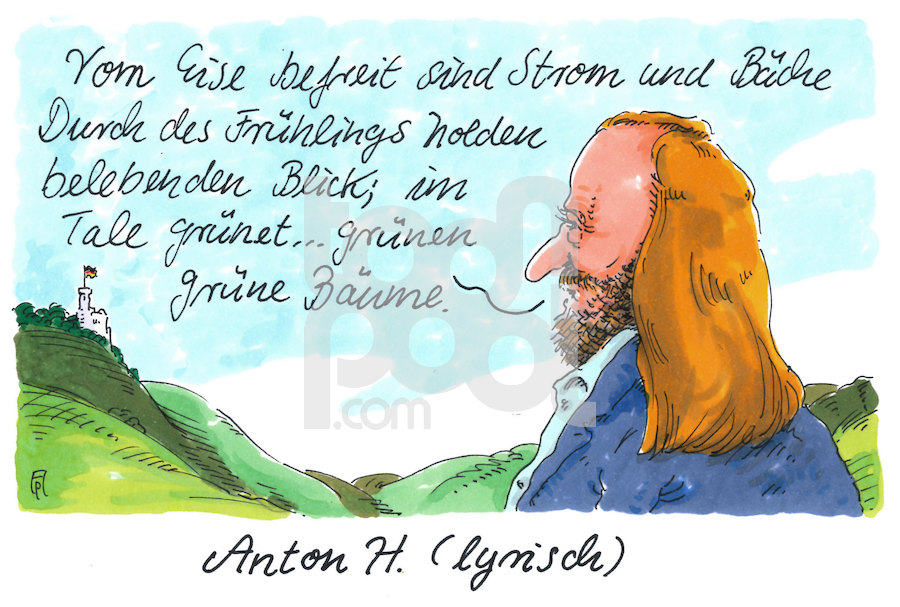 Vom Eise befreit sind Strom und Bäche
Durch des Frühlings holden
belebenden Blick; im
Tale grünet... grünen
grüne Bäume.
toonpool
.com
Anton H. (lyrisch)